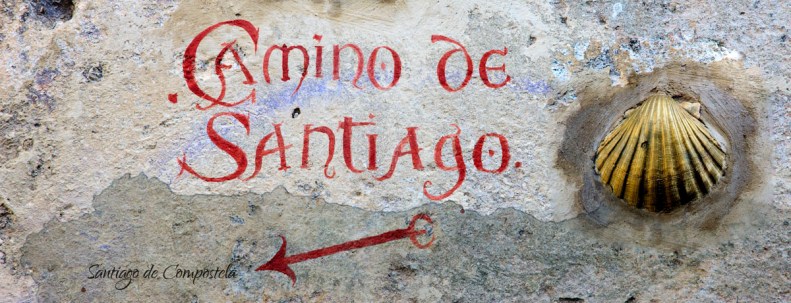 Camino de
Santiago.
Santiago de Compostela